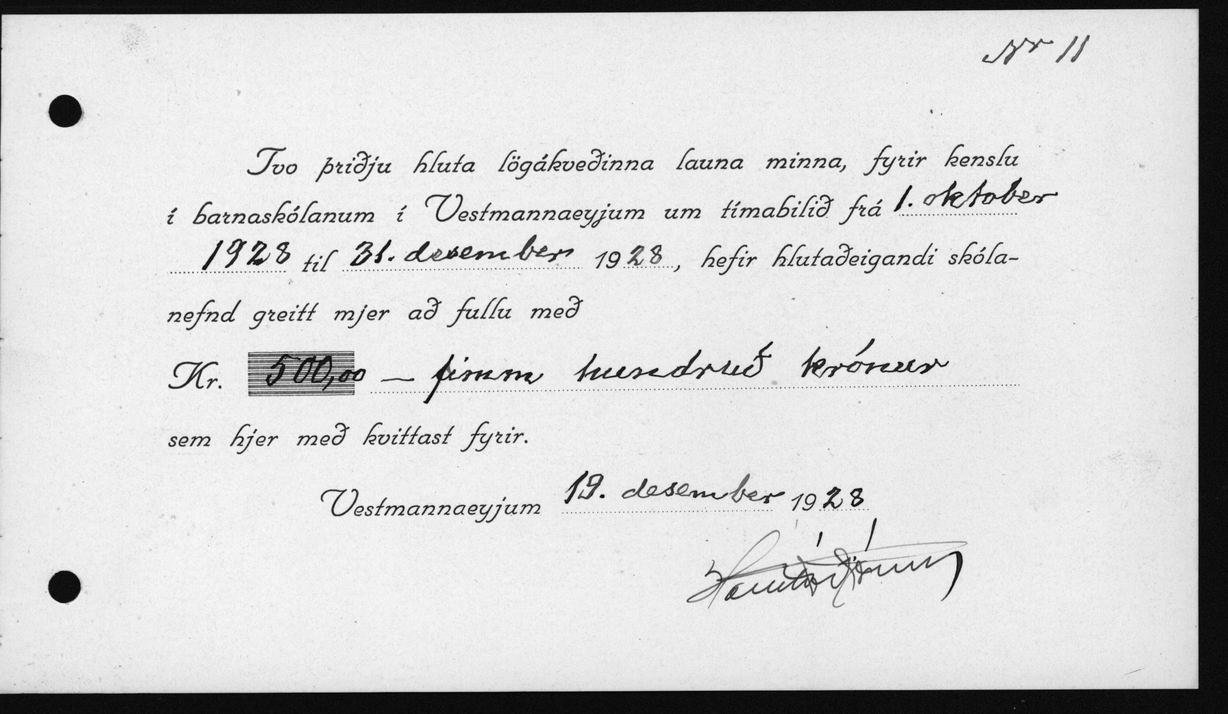 Nr 11
Tvo þriðju hluta lögákveðinna launa minna, fyrir kenslu
í barnaskólanum í Vestmannaeyjum um tímabilið frá 1. oktober
1928 til 31. desember 1928, hefir hlutaðeigandi skóla-
nefnd greitt mjer að fullu með
Kr. 500,00 — fimm hundruð krónur
sem hjer með kvittast fyrir.
Vestmannaeyjum 19. desember 1928